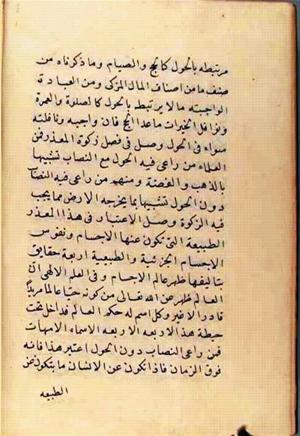 مرتبطه بالحول كالحج والصيام وما ذكرناه من
صنف ما من اصناف المال المزكى ومن العبادة
الواجبته مالا يرتبط بالحول كالصلوة والعمرة
ونوافل الخيرات ماعدا الحج فان واجبه ونافلته
سواء في الحول وصل في فصل زكوة المعدن فمن
العلماء من راعى فيه الحول مع النصاب تشبيها
بالذهب والفضة ومنهم من راعى فيه النصاب
دون الحول تشبيها بما يخرجه الارض مما يجب
فيه الزكوة وصل الاعتبار في هذا المعدن
الطبيعة التي تكون عنها الاجسام ونفوس
الاجسام الجزئية والطبيعية اربعة حقايق
بتاليفها ظهر عالم الاجسام وفي العلم الالهي ان
العالم ظهر عن الله تعالى من كونه حيا عالما مريدا
قادرا لا غير وكل اسم له حكم في العالم فداخل تحت
حيطة هذا الاربعه الاربعه الاسماء الامهات
فمن راعى النصاب دون الحول اعتبر هذا فانه
فوق الزمان فاذا تكون عن الانسان ما يتكون عن
الطبيعه